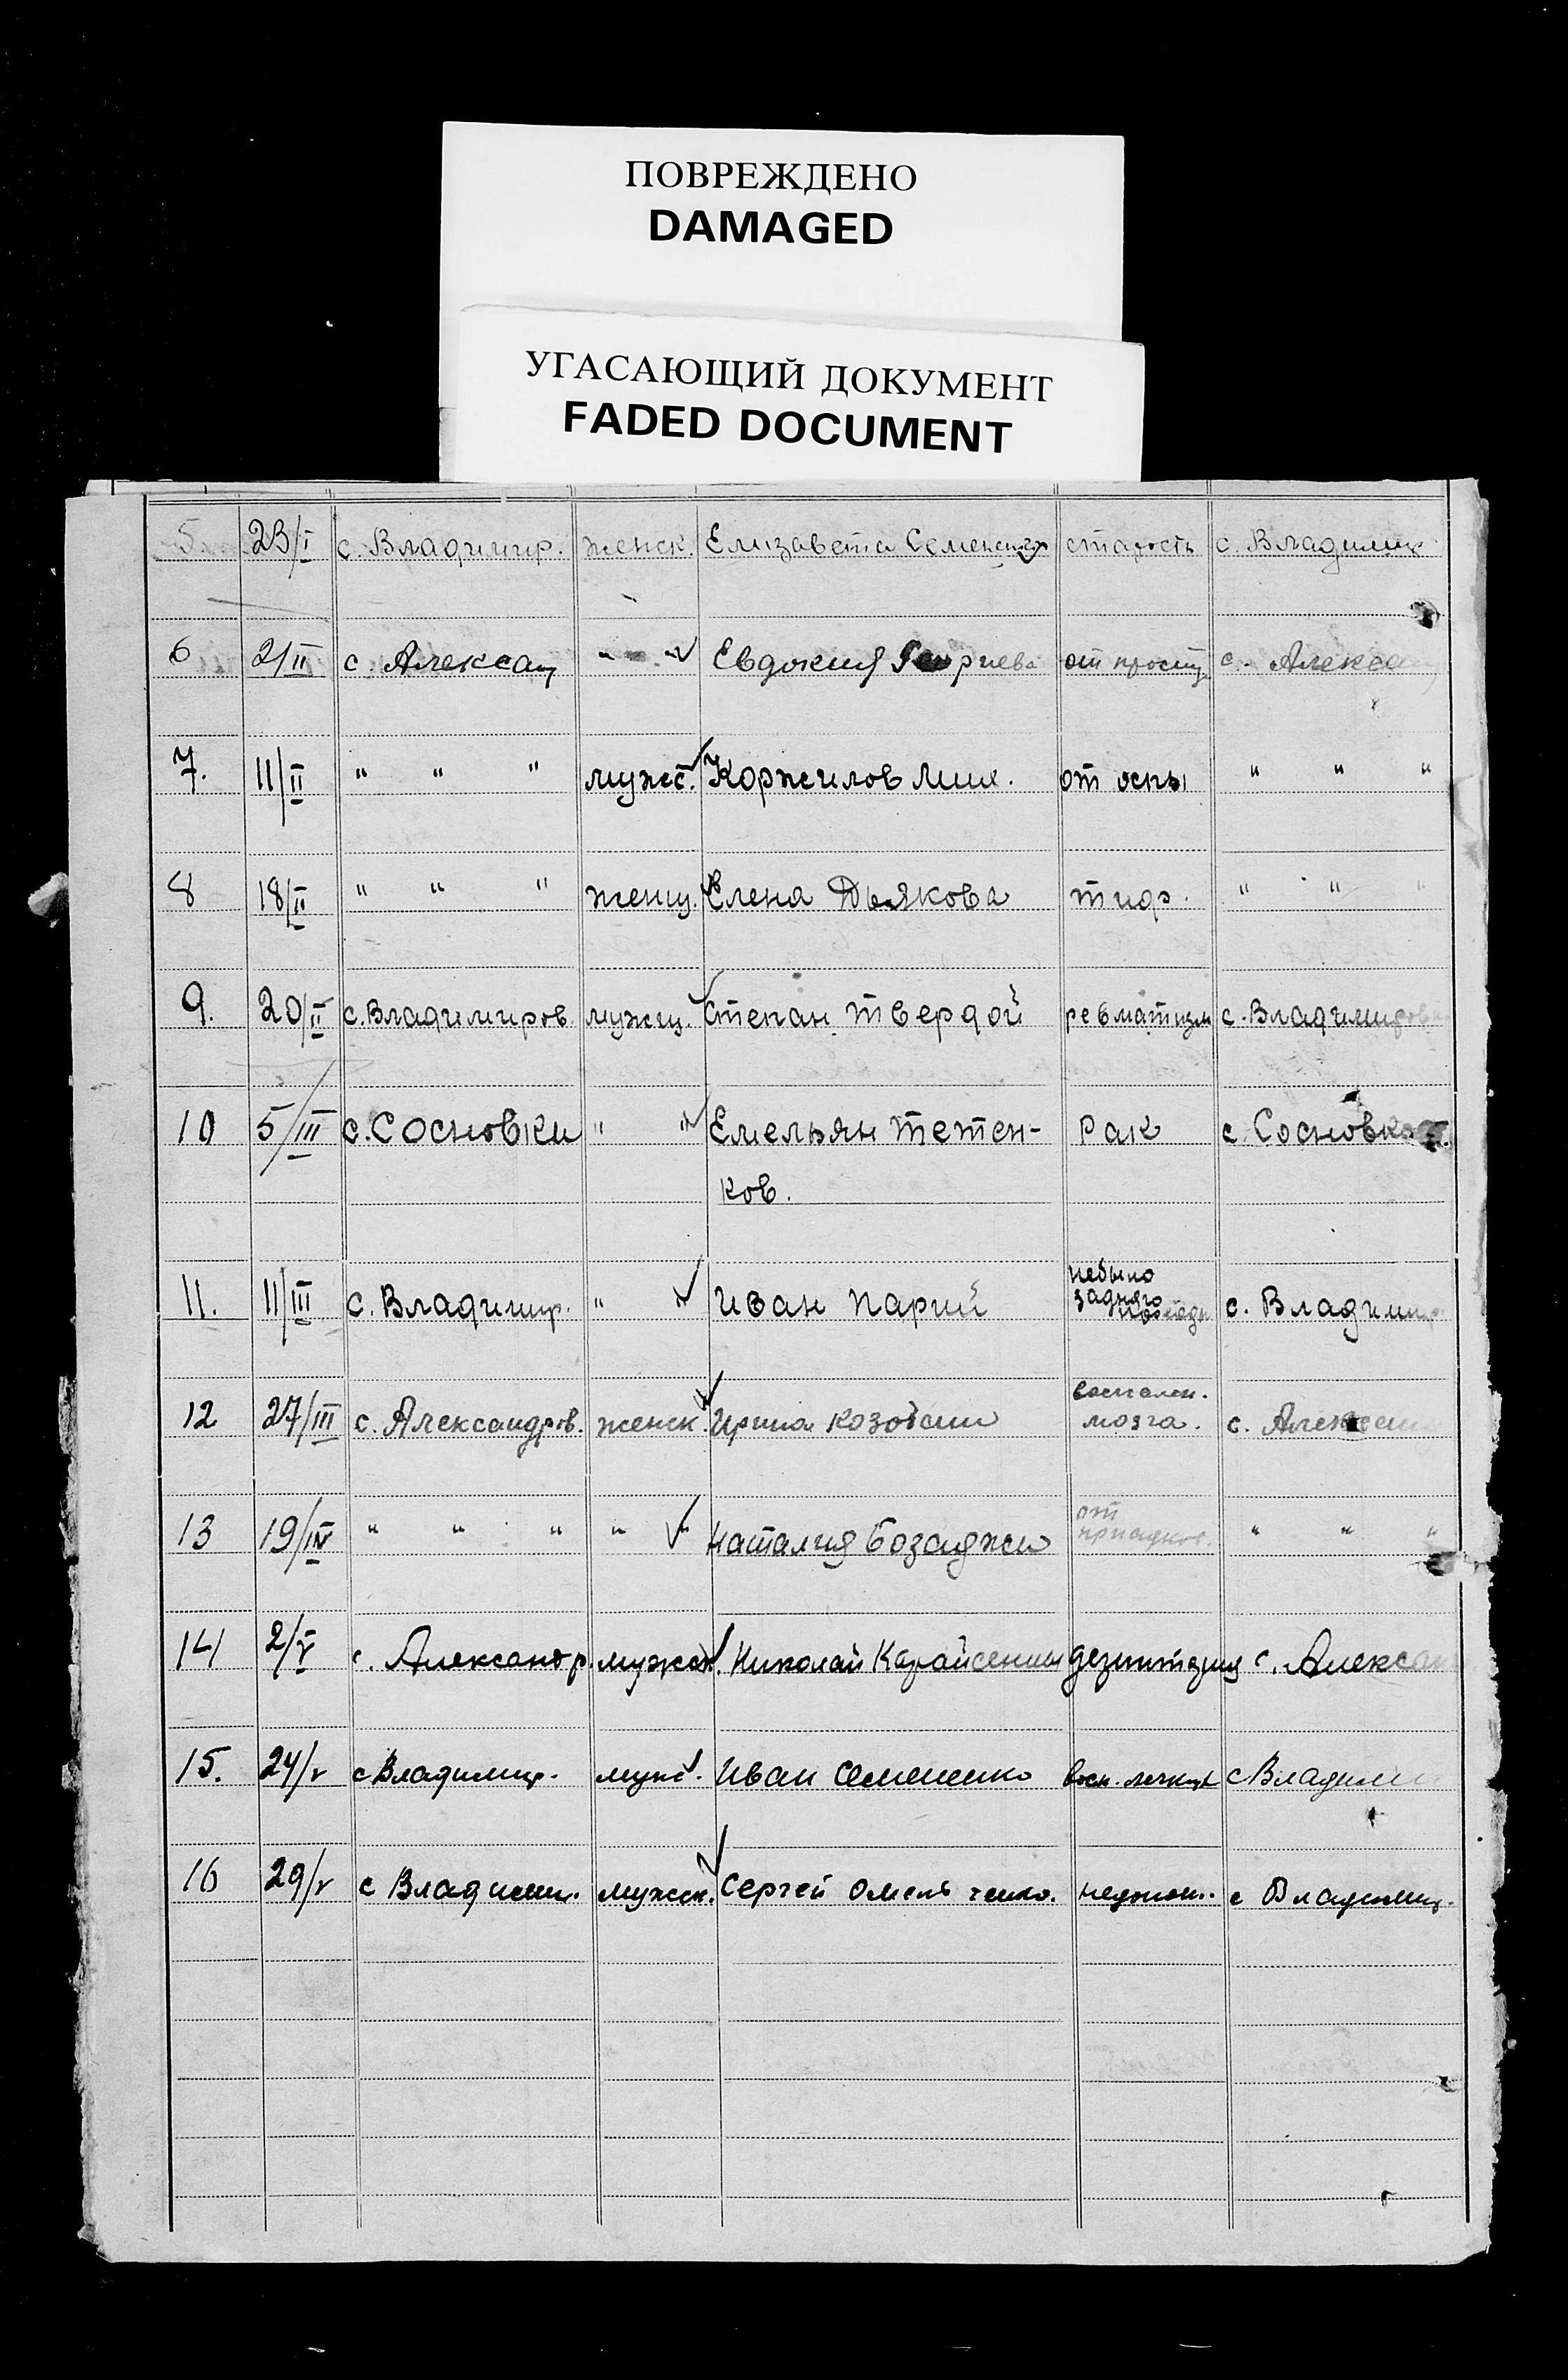 ПОВРЕЖДЕНО
DAMAGED
УГАСАЮЩИЙ ДОКУМЕНТ
FADED DOCUMENT
5. 23/I с. Владимир. женск. Елизавета старость с. Владимир
6 2/II с. Алексан " " Евдокия от прост с. Алексан
7. 11/II " " " мужс. Коржилов Мих. от оспы " " "
8 18/II " " " женщ. Елена Дьякова тиф. " " "
9. 20/II с. Владимиров. мужщ. Степан Твердой ревматизм с. Владимировк
10 5/III с. Сосновки " " Емельян Тетен- Рак с. Сосновка
ков.
небыло
11. 11/III с. Владимир. " " Иван Парий заднего с. Владимир
воспален.
12 27/III с. Александров. женск. Ирина мозга. с.
от
13 19/IV " " " " " Наталия Бозаджи " " "
14 2/V с. Александр. мужск. Николай с. Алексан
15. 24/V с Владимир. мужс. Иван Семененко восп. легких с Владими
16 29/V с Владими. мужск. Сергей Омельченко. недонош. с Владимир.